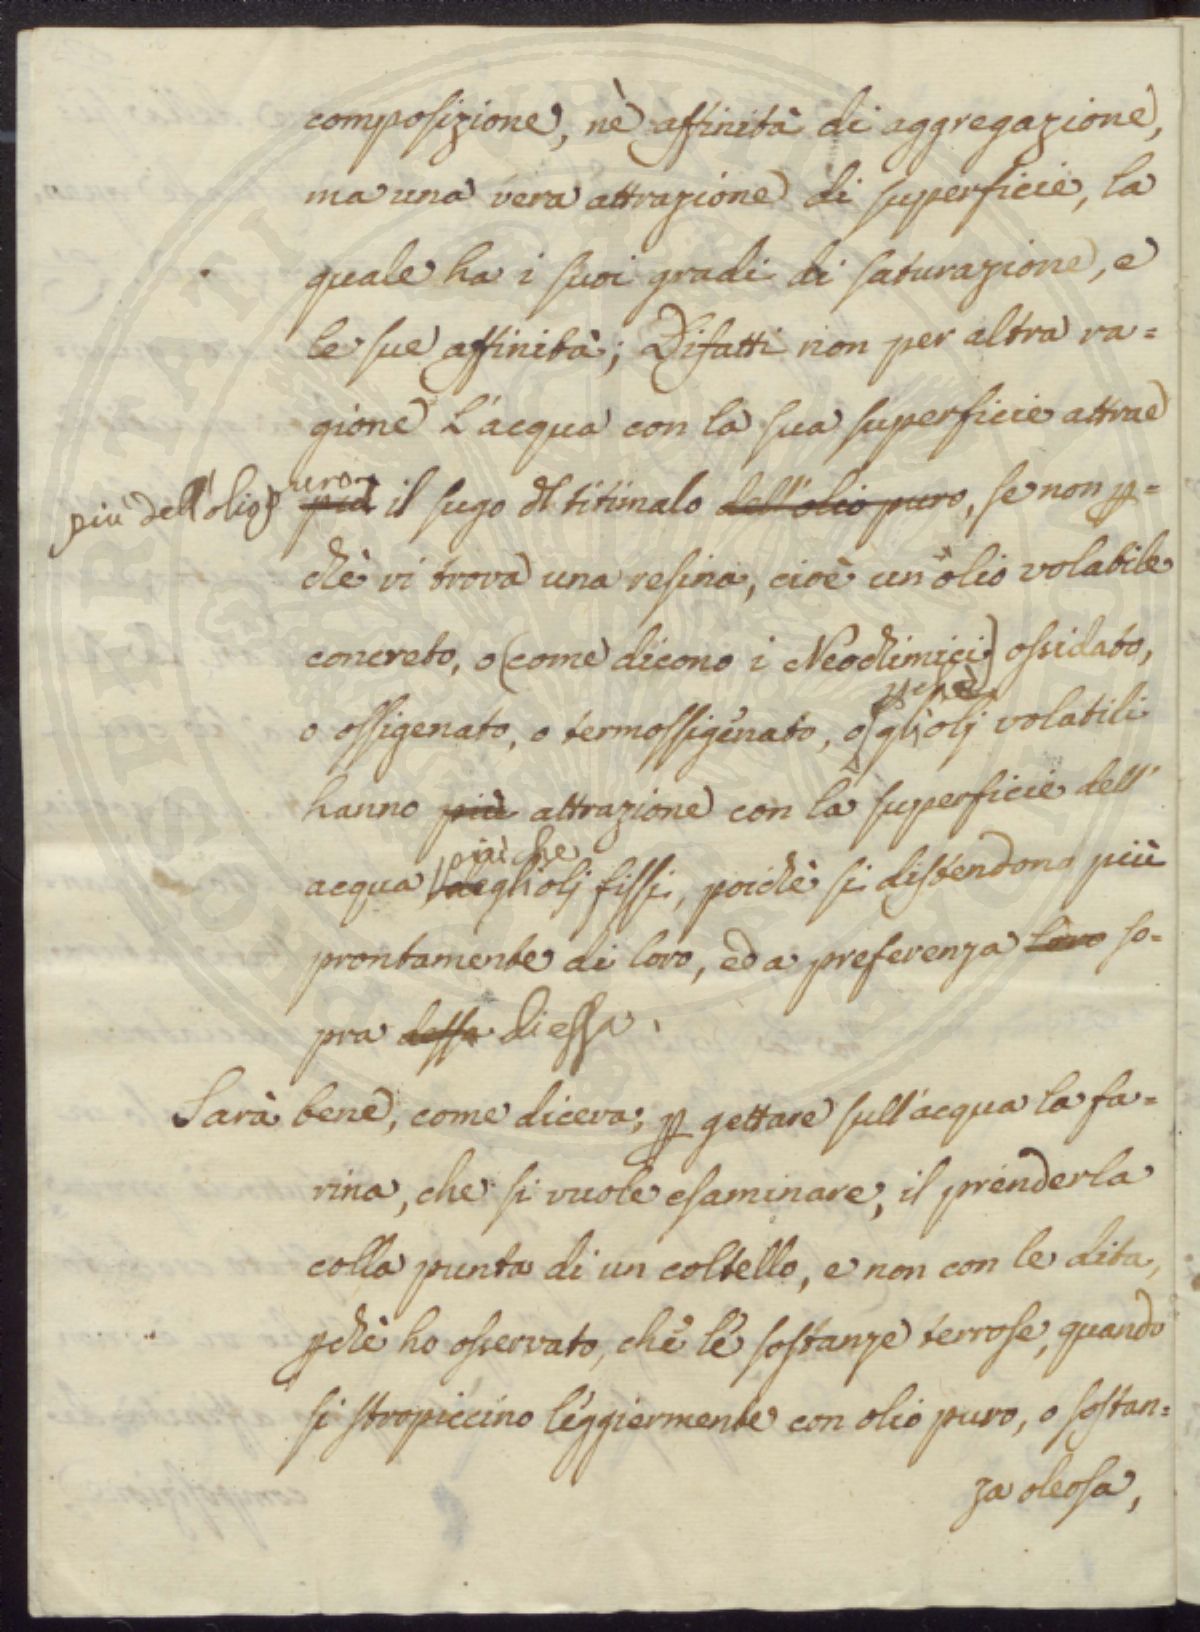 composizione, nè affinità di aggregazione,
ma una vera attrazione di superficie, la
quale ha i suoi gradi di saturazione, e
le sue affinità; Difatti non per altra ra=
gione L'acqua con la sua superficie attrae
più dell'olio puro più il sugo dl titimalo dell'olio puro, se non p=
chè vi trova una resina, cioè un olio volabile
concreto, o (come dicono i Neochimici) ossidato,
o ossigenato, o termossigenato, o gli olj volatili
hanno più attrazione con la superficie dell'
più che
acqua degli olj fissi, poichè si distendono più
prontamente di loro, ed a preferenza loro so=
pra dessa di essa.
Sarà bene, come diceva, p gettare sull'acqua la fa=
rina, che si vuole esaminare, il prenderla
colla punta di un coltello, e non con le dita,
pchè ho osservato, che le sostanze terrose, quando
si stropiccino leggiermente con olio puro, o sostan=
za oleosa,